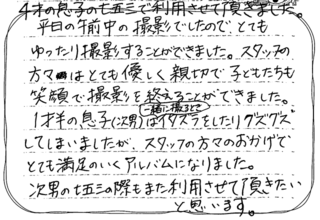 4才の息子の七五三で利用させて頂きました。
平日の午前中の撮影でしたので、とても
ゆったり撮影することができました。スタッフの
方々はとても優しく親切で子どもたちも
笑顔で撮影を終えることができました。
一緒に撮るとき
1才半の息子(次男)はイタズラをしたりグズグズ
してしまいましたが、スタッフの方々のおかげで
とても満足のいくアルバムになりました。
次男の七五三の際もまた利用させて頂きたい
と思います。